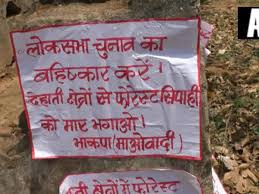 A
लोकसभा चुनाव का
बहिष्कार करें।
देहाती क्षेत्रों से फोरेस्ट सिपाही
को मार भगाओ।
भाकपा (माओवादी)
क्षेत्रों में फोरेस्ट